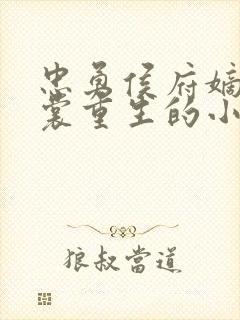 忠勇侯府嫡
裳重生的小
狼叔當道